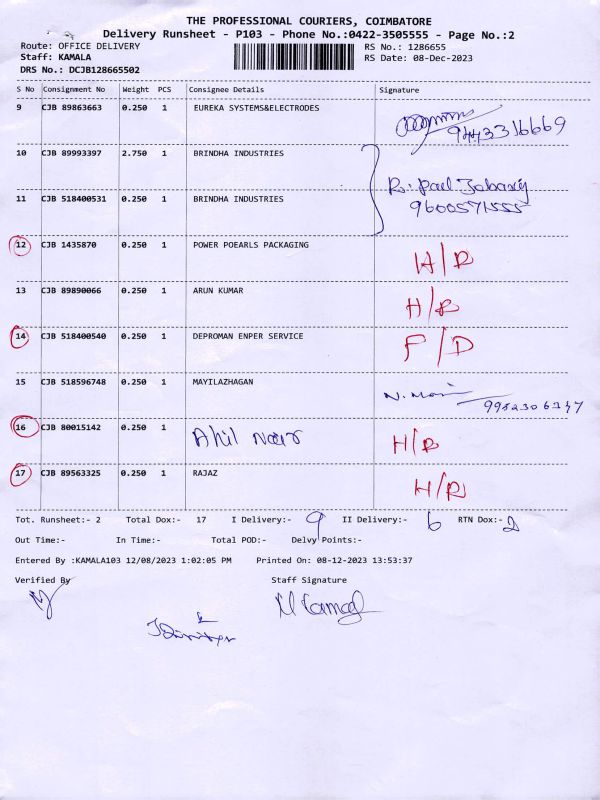 THE PROFESSIONAL COURIERS, COIMBATORE
Delivery Runsheet - P103 - Phone No.:0422-3505555 - Page No.:2
Route: OFFICE DELIVERY RS No.: 1286655
Staff: KAMALA RS Date: 08-Dec-2023
DRS No.: DCJB128665502
S No Consignment No Weight PCS Consignee Details Signature
9 CJB 89863663 0.250 1 EUREKA SYSTEMS&ELECTRODES
9443316669
10 CJB 89993397 2.750 1 BRINDHA INDUSTRIES
R. Paul
11 CJB 518400531 0.250 1 BRINDHA INDUSTRIES 9600571555
12 CJB 1435870 0.250 1 POWER POEARLS PACKAGING H/R
13 CJB 89890066 0.250 1 ARUN KUMAR H/R
14 CJB 518400540 0.250 1 DEPROMAN ENPER SERVICE F/D
15 CJB 518596748 0.250 1 MAYILAZHAGAN
16 CJB 80015142 0.250 1 Ahil Nair H/R
17 CJB 89563325 0.250 1 RAJAZ H/R
Tot. Runsheet:- 2 Total Dox:- 17 I Delivery:- 9 II Delivery:- 6 RTN Dox:- 2
Out Time:- In Time:- Total POD:- Delvy Points:-
Entered By :KAMALA103 12/08/2023 1:02:05 PM Printed On: 08-12-2023 13:53:37
Verified By Staff Signature